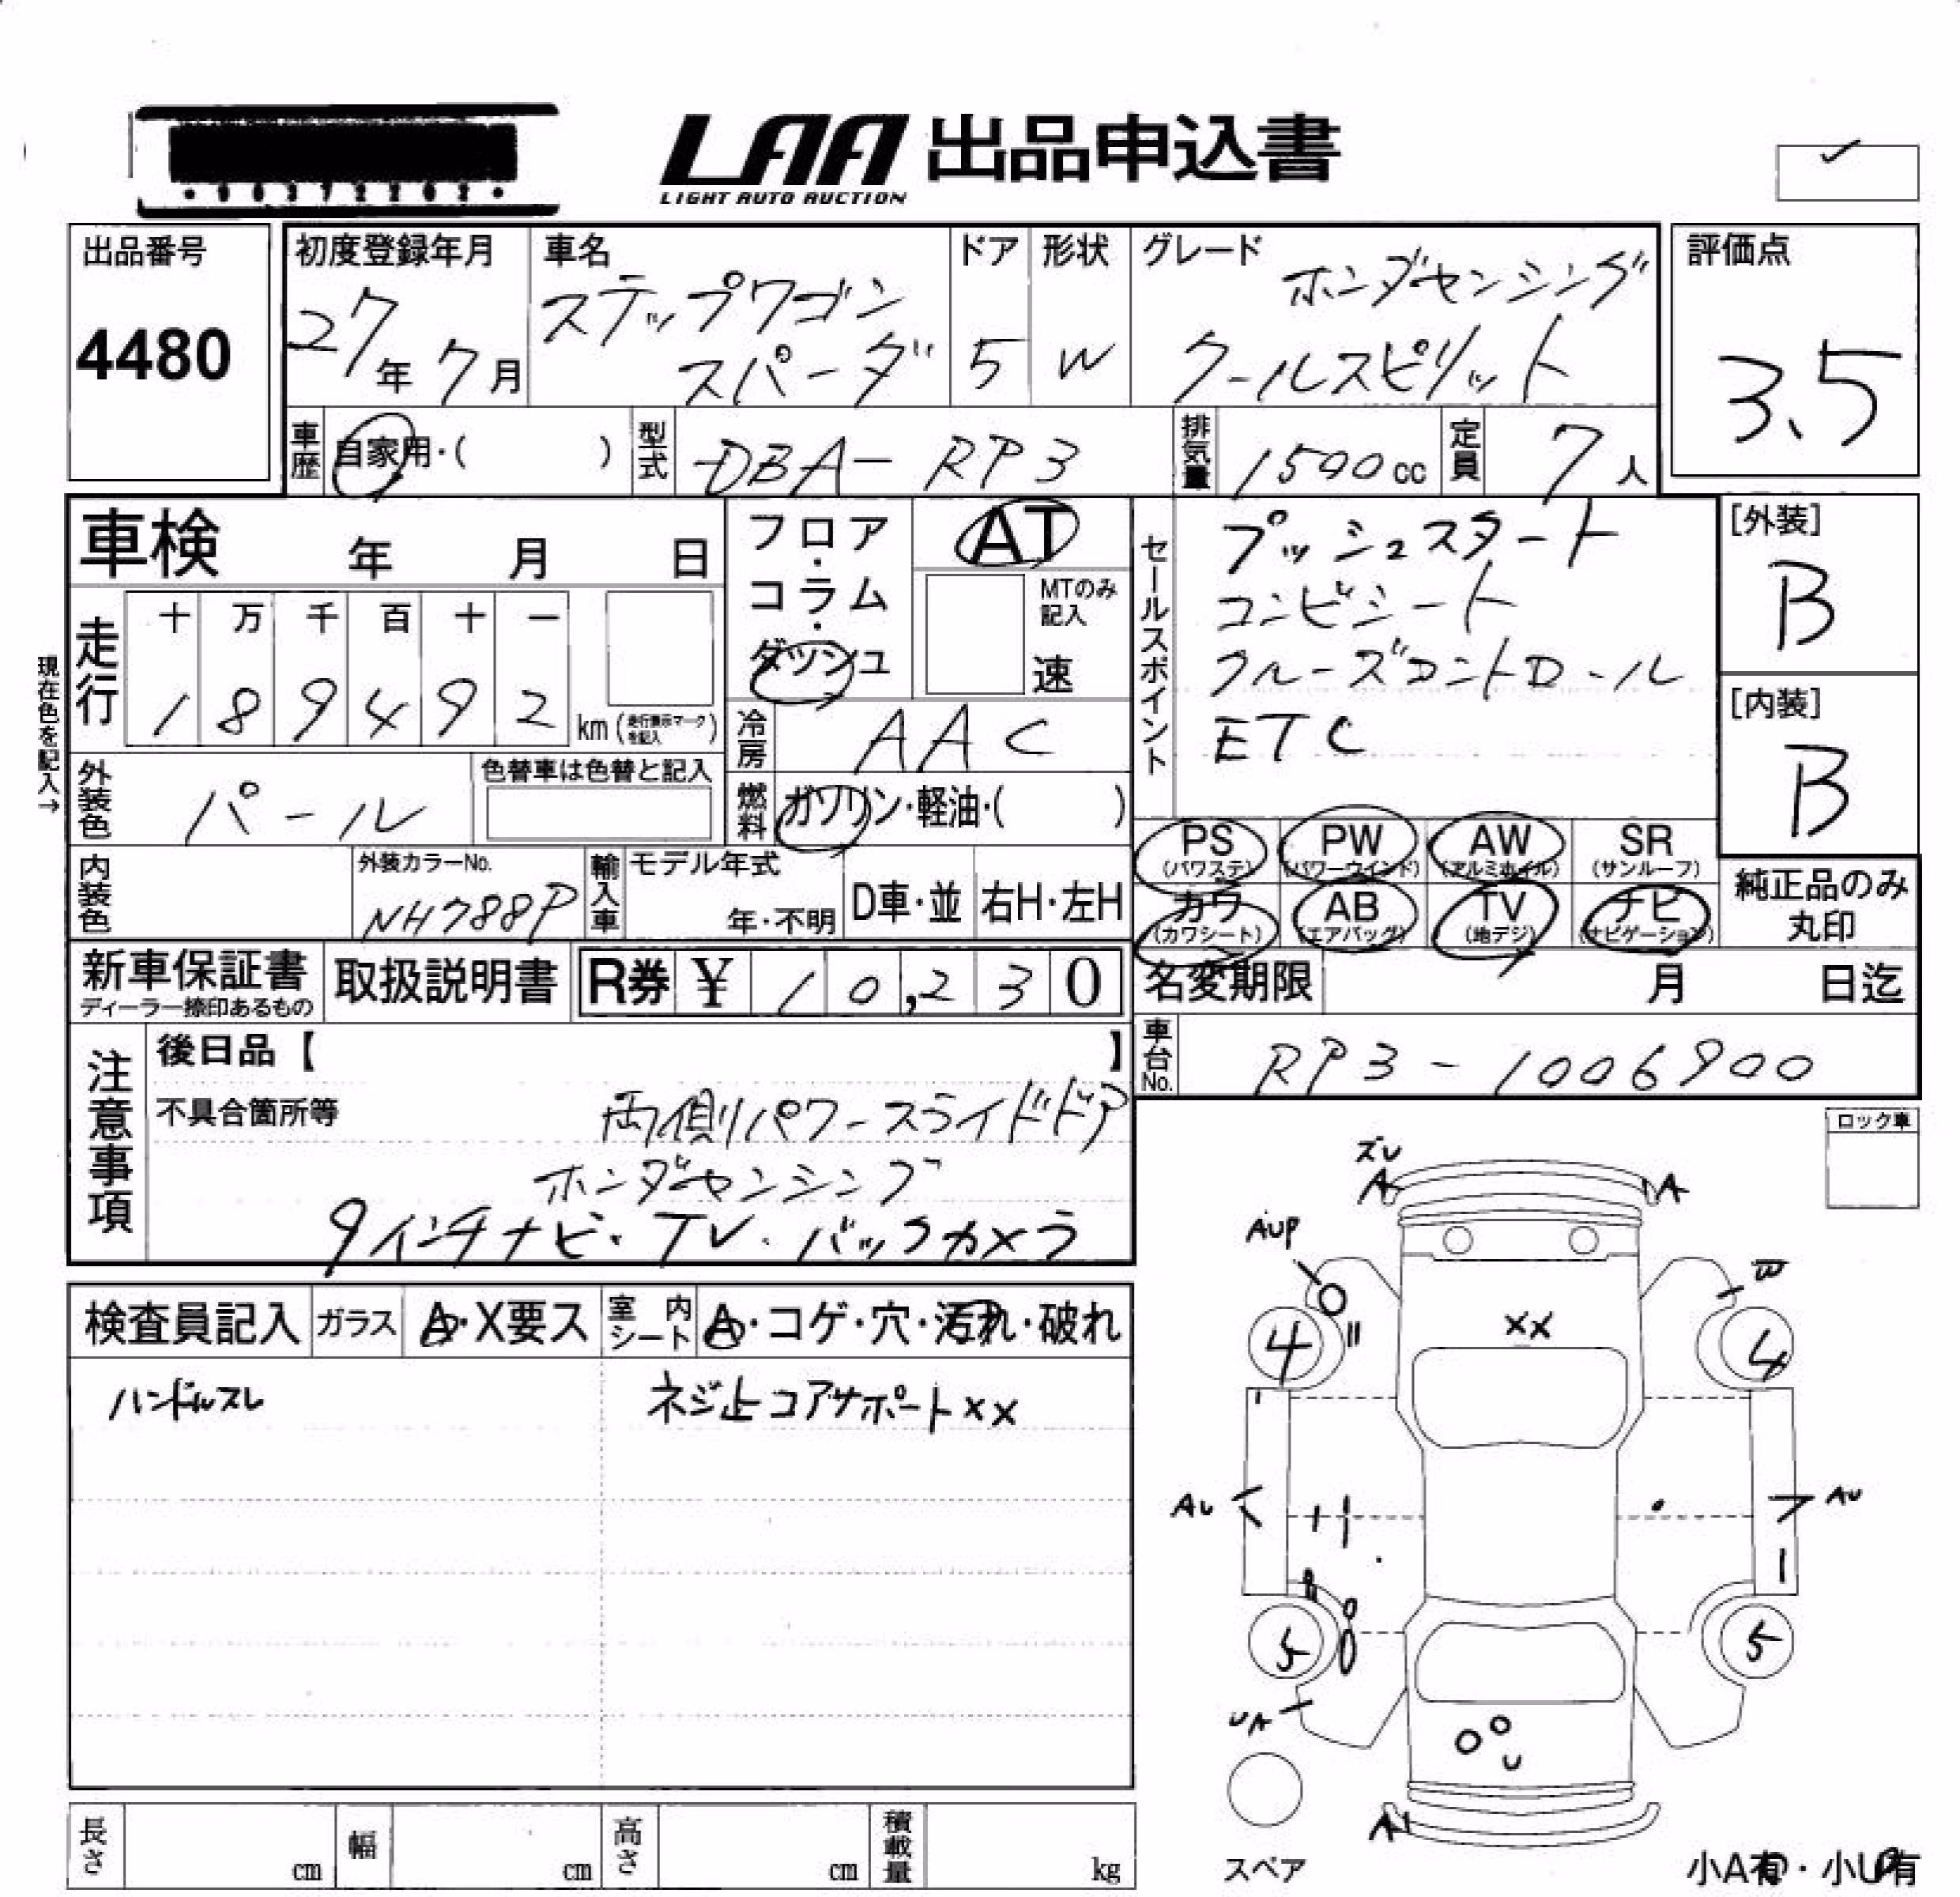 LAA 出品申込書
LIGHT AUTO AUCTION
出品番号
4480
初度登録年月
27年 7月
車名
ステップワゴン
スパーダ
ドア
5
形状
W
グレード
ホンダセンシング
クールスピリット
評価点
3.5
車歴
自家用・( )
型式
DBA-RP3
排気量
1500cc
定員
7人
車検 年 月 日
フロア・コラム・ダッシュ
AT
MTのみ記入
速
セールスポイント
プッシュスタート
コンビシート
クルーズコントロール
ETC
[外装]
B
[内装]
B
現在色を記入→
走行
十 万 千 百 十 一
1 8 9 4 9 2 km (走行表示マークを記入)
冷房
AAC
外装色
パール
色替車は色替と記入
燃料
ガソリン・軽油・( )
PS (パワステ)
PW (パワーウインド)
AW (アルミホイル)
SR (サンルーフ)
カワ (カワシート)
AB (エアバッグ)
TV (地デジ)
ナビ (ナビゲーション)
純正品のみ丸印
内装色
外装カラーNo.
NH788P
輸入車
モデル年式
年・不明
D車・並
右H・左H
新車保証書
ディーラー捺印あるもの
取扱説明書
R券 ¥ 10,230
名変期限 月 日迄
車台No.
RP3-1006900
注意事項
後日品【 】
不具合箇所等
両側パワースライドドア
ホンダセンシング
9インチナビ・TV・バックカメラ
ロック車
検査員記入
ガラス
A・X要ス
室内シート
A・コゲ・穴・汚れ・破れ
ハンドルスレ
ネジ止コアサポートXX
ズレ
A
A
AUP
W
XX
4
4
AU
AU
5
5
UA
U
A
スペア
小A有・小U有
長さ cm
幅 cm
高さ cm
積載量 kg